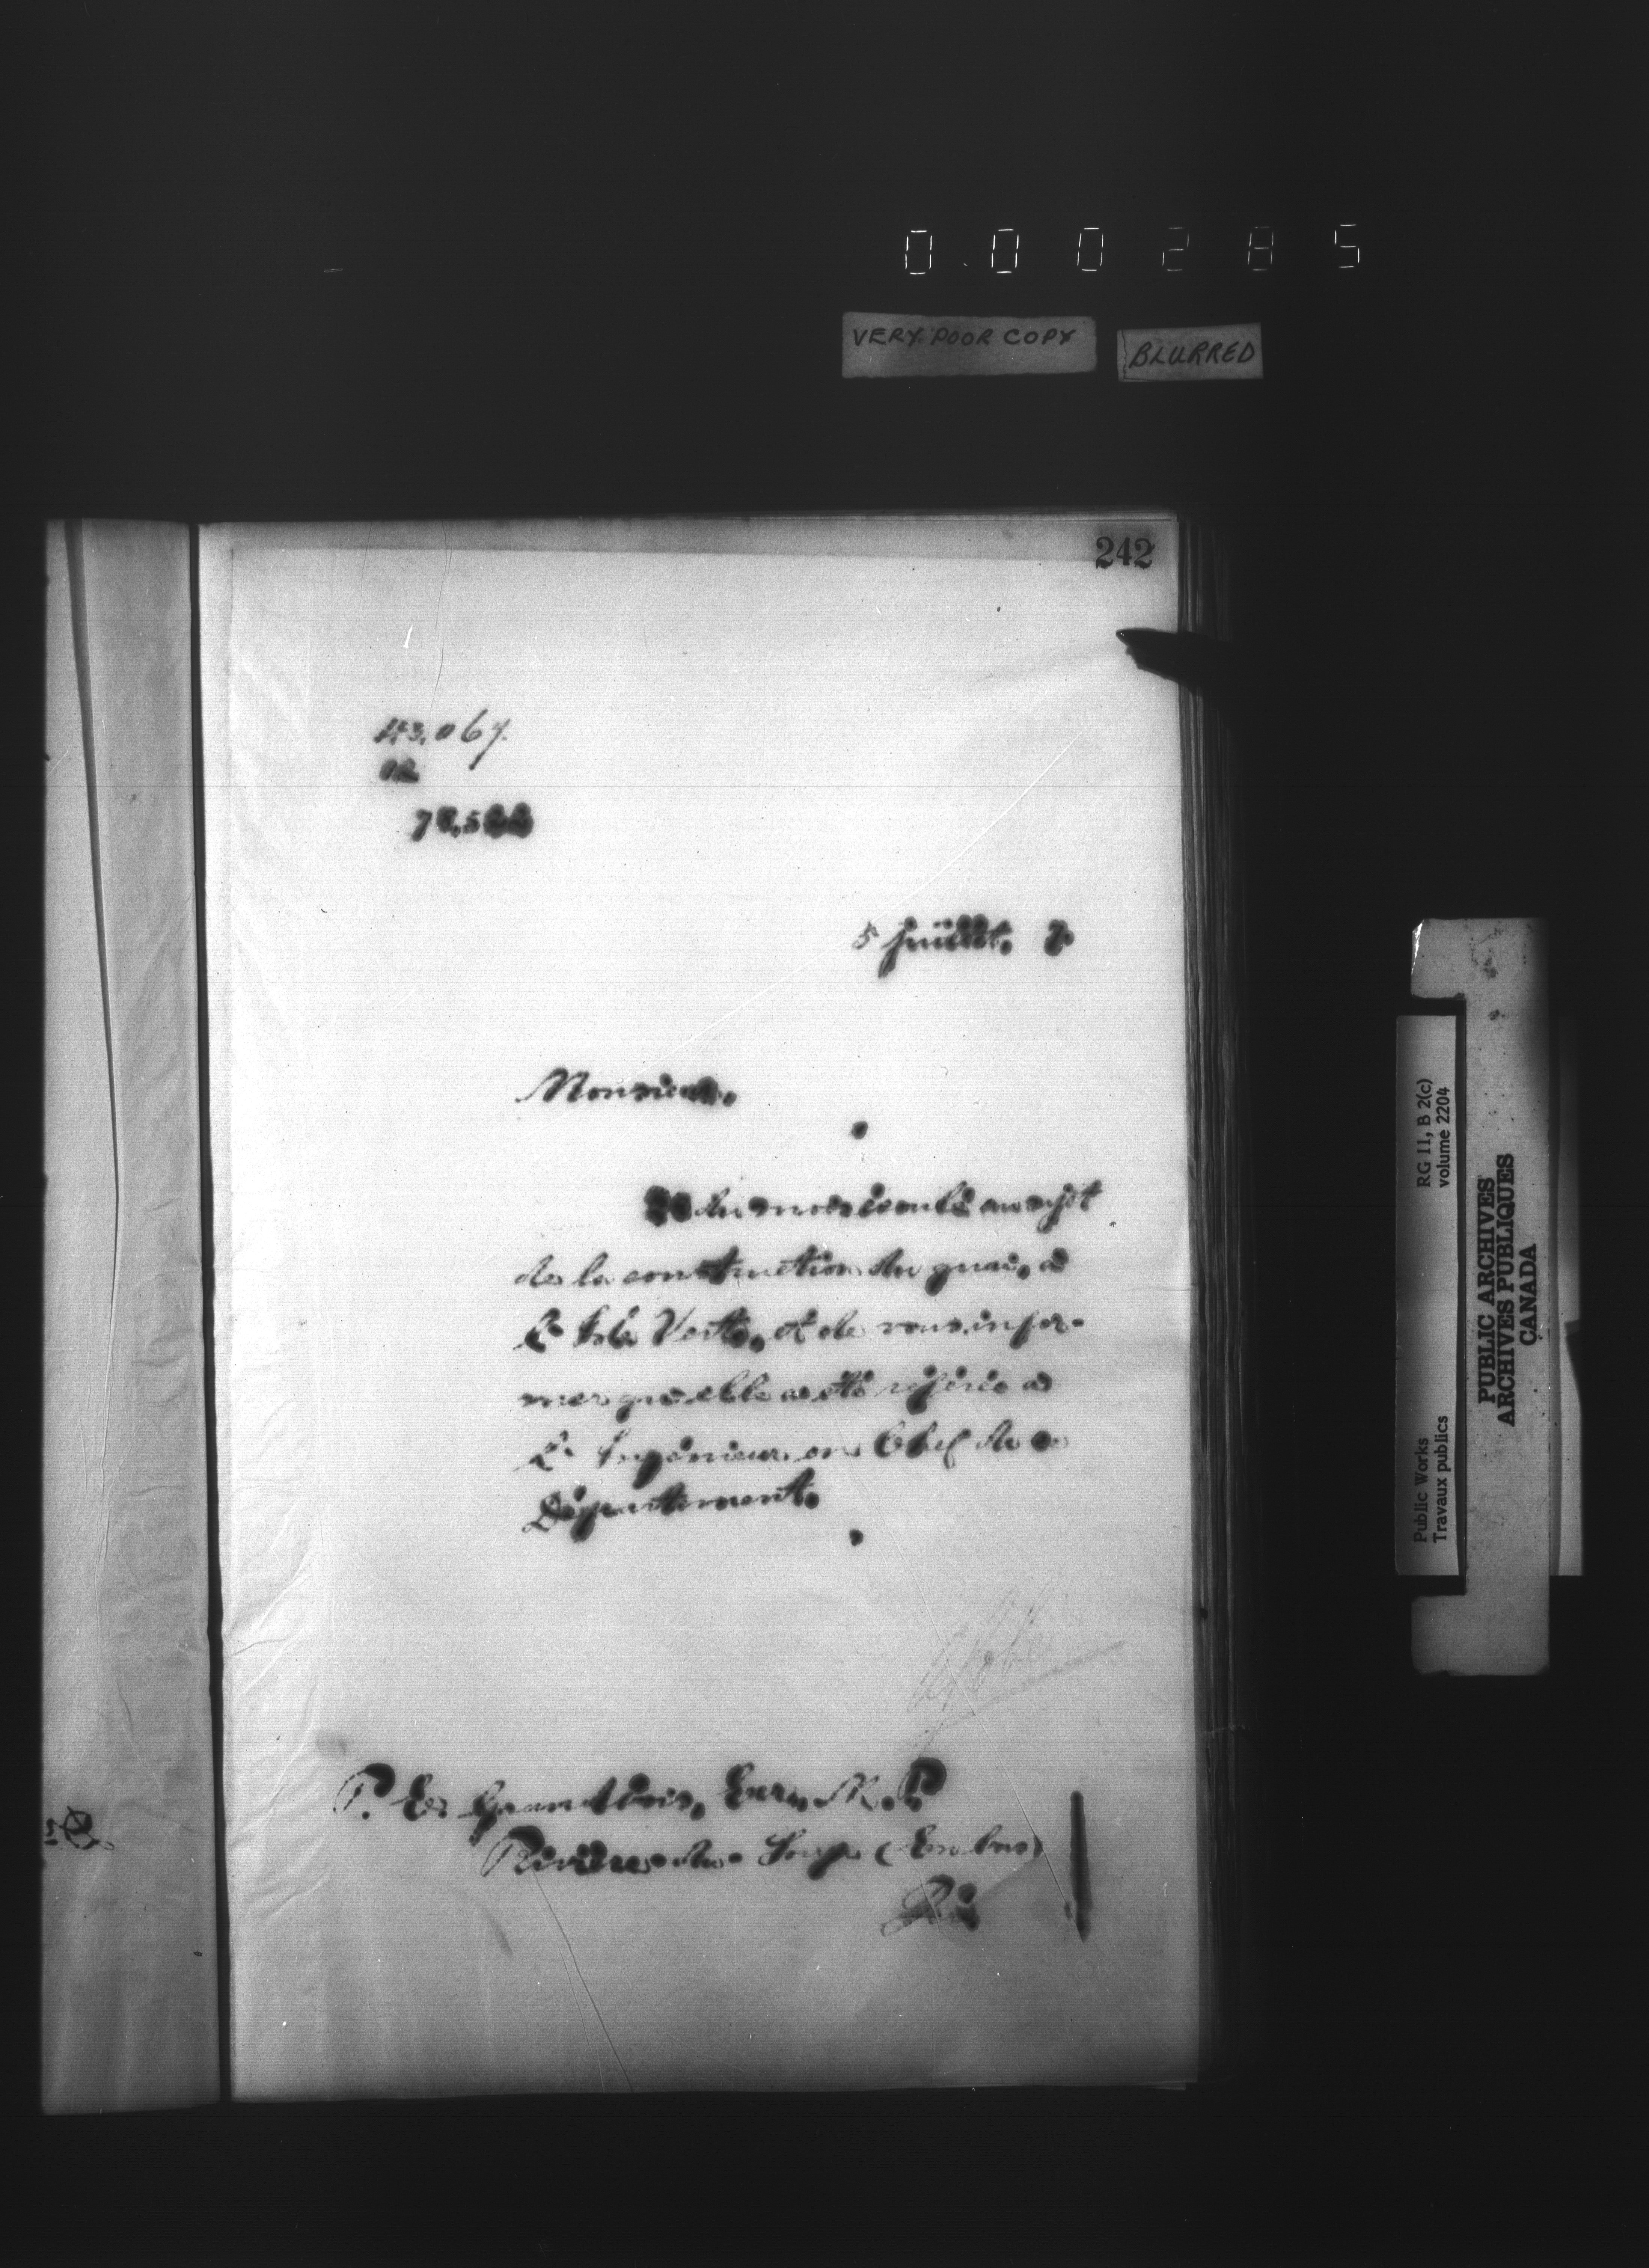 000285
VERY POOR COPY
BLURRED
242
43,067.
5 juillet. 7
Monsieur.
du mois écoulé au sujet
de la construction du quai, à
L'Isle Verte, et de vous infor-
mer qu'elle a été référée à
L'Ingénieur en Chef de ce
Département.
P. E. Grandbois, Ecr., M.P.
Rivière-du-Loup (En bas)
RG 11, B 2(c)
volume 2204
Public Works
Travaux publics
PUBLIC ARCHIVES
ARCHIVES PUBLIQUES
CANADA